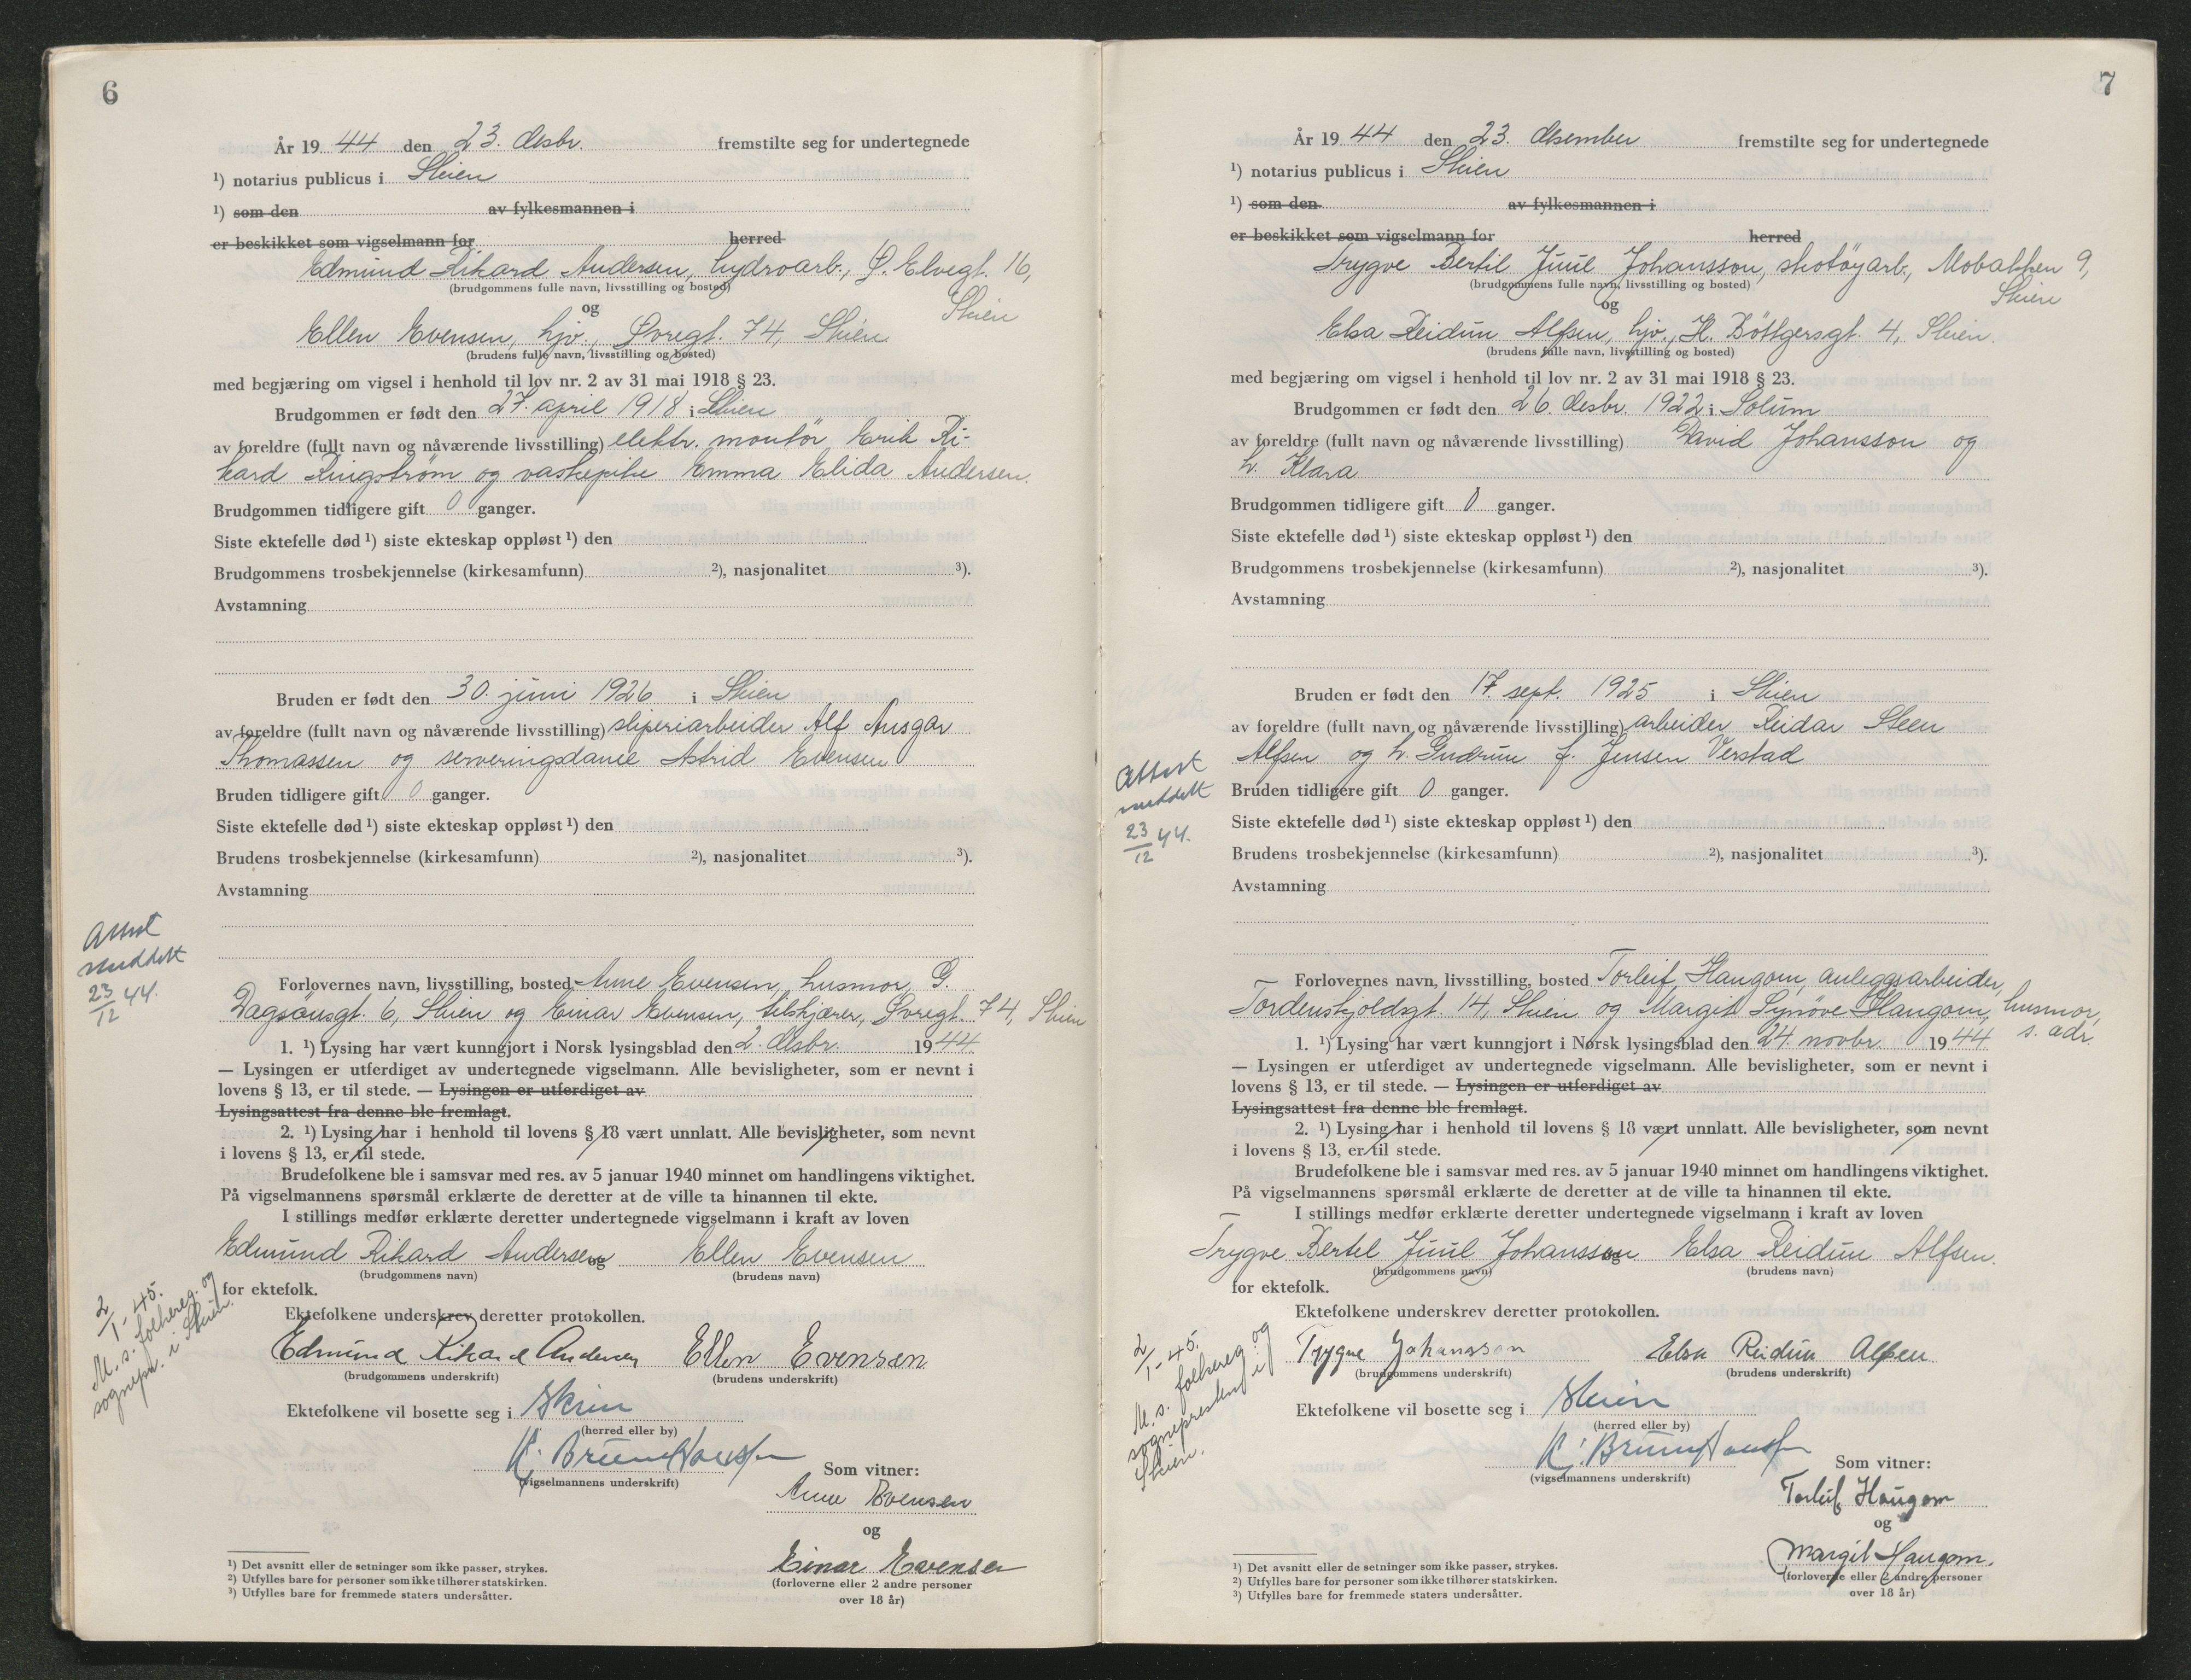 6
År 19 44 den 23. desbr. fremstilte seg for undertegnede
¹) notarius publicus i Skien
¹) som den av fylkesmannen i
er beskikket som vigselmann for herred
Edmund Rikard Andersen, hydroarb., Ø. Elvegt. 16,
(brudgommens fulle navn, livsstilling og bosted)
Skien
og
Ellen Evensen, hjv., Øvregt. 74, Skien
(brudens fulle navn, livsstilling og bosted)
med begjæring om vigsel i henhold til lov nr. 2 av 31 mai 1918 § 23.
Brudgommen er født den 27. april 1918 i Skien
av foreldre (fullt navn og nåværende livsstilling) elektr. montör Erik Ri-
kard Ringström og vaskepike Emma Elida Andersen.
Brudgommen tidligere gift 0 ganger.
Siste ektefelle død ¹) siste ekteskap oppløst ¹) den
Brudgommens trosbekjennelse (kirkesamfunn) ²), nasjonalitet ³).
Avstamning
Bruden er født den 30. juni 1926 i Skien
av foreldre (fullt navn og nåværende livsstilling) sliperiarbeider Alf Ansgar
Thomassen og serveringsdame Astrid Evensen
Bruden tidligere gift 0 ganger.
Siste ektefelle død ¹) siste ekteskap oppløst ¹) den
Brudens trosbekjennelse (kirkesamfunn) ²), nasjonalitet ³).
Avstamning
Attest
meddelt
23/12 44.
Forlovernes navn, livsstilling, bosted Anne Evensen, husmor, G.
Dagsönsgt. 6, Skien og Einar Evensen, tilskjærer, Øvregt. 74, Skien
1. ¹) Lysing har vært kunngjort i Norsk lysingsblad den 2. desbr. 1944
— Lysingen er utferdiget av undertegnede vigselmann. Alle bevisligheter, som er nevnt i
lovens § 13, er til stede. — Lysingen er utferdiget av
Lysingsattest fra denne ble fremlagt.
2. ¹) Lysing har i henhold til lovens § 18 vært unnlatt. Alle bevisligheter, som nevnt
i lovens § 13, er til stede.
Brudefolkene ble i samsvar med res. av 5 januar 1940 minnet om handlingens viktighet.
På vigselmannens spørsmål erklærte de deretter at de ville ta hinannen til ekte.
I stillings medfør erklærte deretter undertegnede vigselmann i kraft av loven
Edmund Rikard Andersen og Ellen Evensen
(brudgommens navn) (brudens navn)
for ektefolk.
2/1-45.
M. s. folkereg. og
sognepr. i Skien.
Ektefolkene underskrev deretter protokollen.
Edmund Rikard Andersen Ellen Evensen
(brudgommens underskrift) (brudens underskrift)
Ektefolkene vil bosette seg i Skien
(herred eller by)
K. Bruun Hanssen
(vigselmannens underskrift)
Som vitner:
Anne Evensen
og
Einar Evensen
(forloverne eller 2 andre personer
over 18 år)
¹) Det avsnitt eller de setninger som ikke passer, strykes.
²) Utfylles bare for personer som ikke tilhører statskirken.
³) Utfylles bare for fremmede staters undersåtter.
7
År 19 44 den 23. desember fremstilte seg for undertegnede
¹) notarius publicus i Skien
¹) som den av fylkesmannen i
er beskikket som vigselmann for herred
Trygve Bertil Juul Johansson, skotøyarb., Mobakken 9,
(brudgommens fulle navn, livsstilling og bosted)
Skien
og
Elsa Reidun Alfsen, hjv., H. Böttgersgt. 4, Skien.
(brudens fulle navn, livsstilling og bosted)
med begjæring om vigsel i henhold til lov nr. 2 av 31 mai 1918 § 23.
Brudgommen er født den 26. desbr. 1922 i Solum
av foreldre (fullt navn og nåværende livsstilling) David Johansson og
h. Klara
Brudgommen tidligere gift 0 ganger.
Siste ektefelle død ¹) siste ekteskap oppløst ¹) den
Brudgommens trosbekjennelse (kirkesamfunn) ²), nasjonalitet ³).
Avstamning
Bruden er født den 17. sept. 1925 i Skien
av foreldre (fullt navn og nåværende livsstilling) arbeider Reidar Steen
Alfsen og h. Gudrun f. Jensen Verstad
Attest
meddelt
23/12 44.
Bruden tidligere gift 0 ganger.
Siste ektefelle død ¹) siste ekteskap oppløst ¹) den
Brudens trosbekjennelse (kirkesamfunn) ²), nasjonalitet ³).
Avstamning
Forlovernes navn, livsstilling, bosted Torleif Haugom, anleggsarbeider,
Tordenskjoldsgt. 14, Skien og Margit Synöve Haugom, husmor,
s. adr.
1. ¹) Lysing har vært kunngjort i Norsk lysingsblad den 24 novbr. 1944
— Lysingen er utferdiget av undertegnede vigselmann. Alle bevisligheter, som er nevnt i
lovens § 13, er til stede. — Lysingen er utferdiget av
Lysingsattest fra denne ble fremlagt.
2. ¹) Lysing har i henhold til lovens § 18 vært unnlatt. Alle bevisligheter, som nevnt
i lovens § 13, er til stede.
Brudefolkene ble i samsvar med res. av 5 januar 1940 minnet om handlingens viktighet.
På vigselmannens spørsmål erklærte de deretter at de ville ta hinannen til ekte.
I stillings medfør erklærte deretter undertegnede vigselmann i kraft av loven
Trygve Bertel Juul Johansson og Elsa Reidun Alfsen.
(brudgommens navn) (brudens navn)
for ektefolk.
Ektefolkene underskrev deretter protokollen.
2/1-45.
M. s. folkereg. og
sognepresten i
Skien.
Trygve Johansson Elsa Reidun Alfsen
(brudgommens underskrift) (brudens underskrift)
Ektefolkene vil bosette seg i Skien
(herred eller by)
K. Bruun Hanssen
(vigselmannens underskrift)
Som vitner:
Torleif Haugom
og
Margit Haugom.
(forloverne eller 2 andre personer
over 18 år)
¹) Det avsnitt eller de setninger som ikke passer, strykes.
²) Utfylles bare for personer som ikke tilhører statskirken.
³) Utfylles bare for fremmede staters undersåtter.